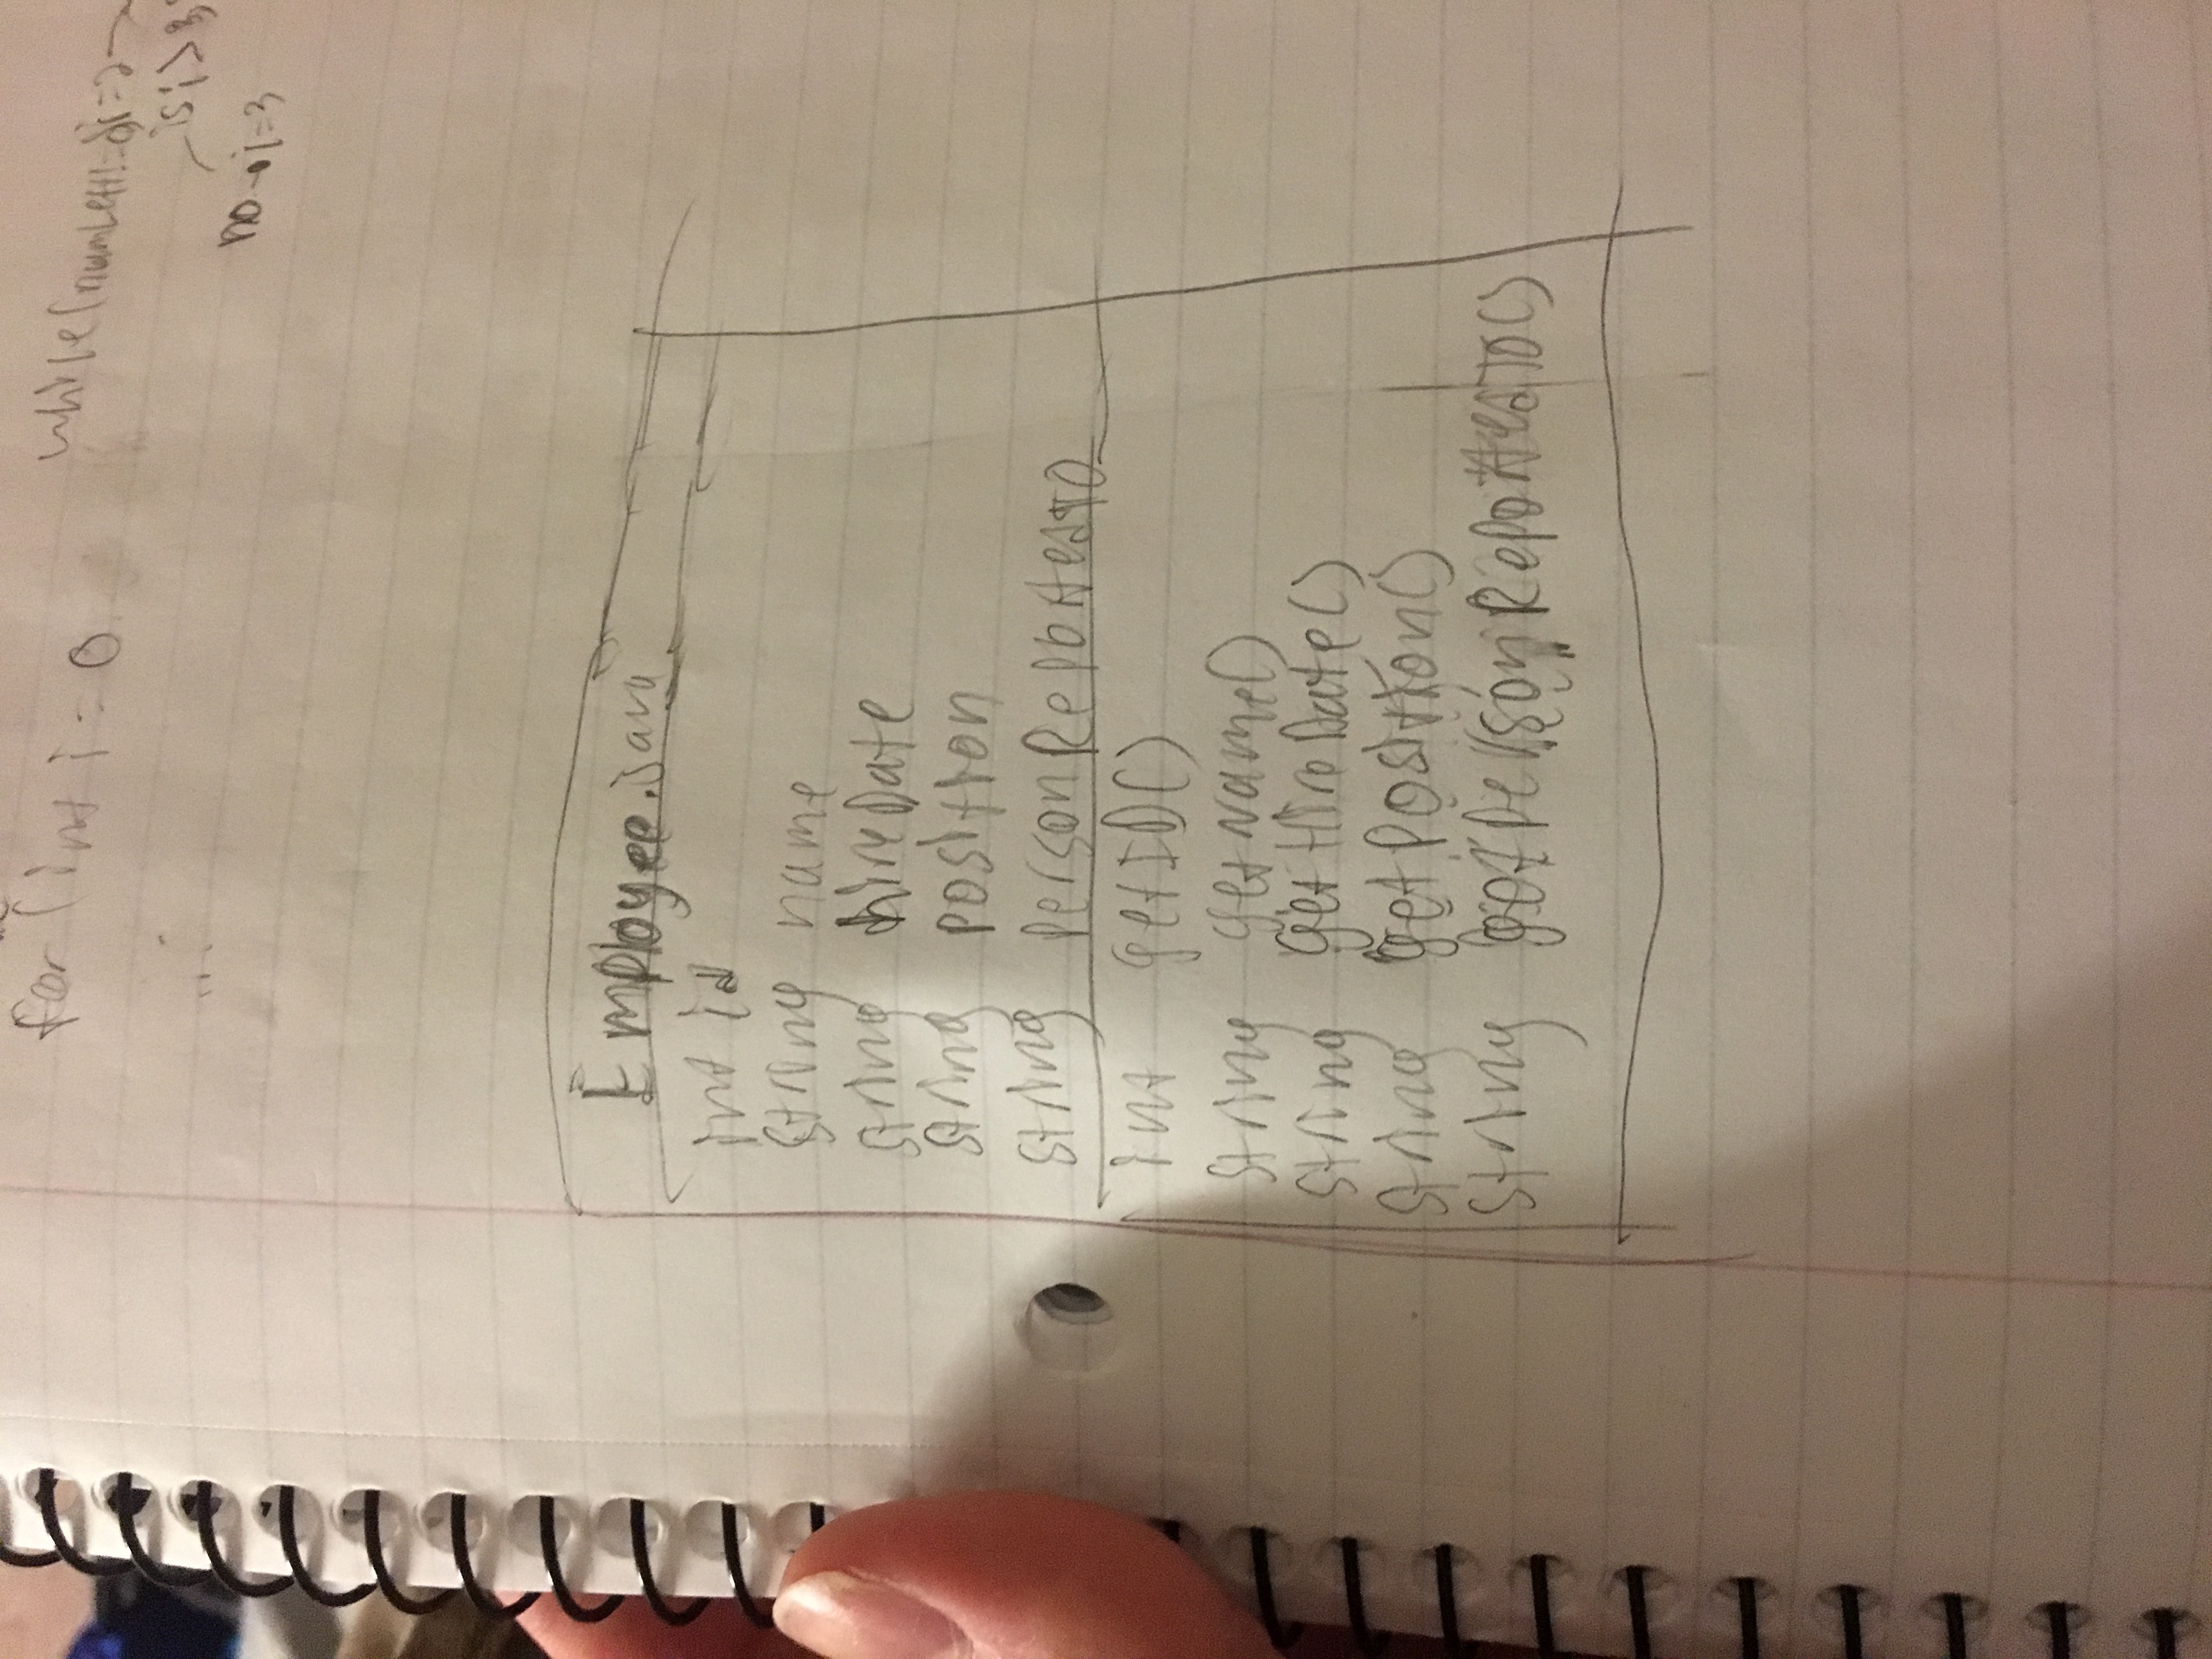 for (int i = 0
while(numLeft!=0
i=2
...
is i > 3,
no → i=3
Employee.java
int id
string name
string hireDate
string position
string personReportedTo
int getID()
string getName()
string getHireDate()
string getPosition()
string getPersonReportedTo()